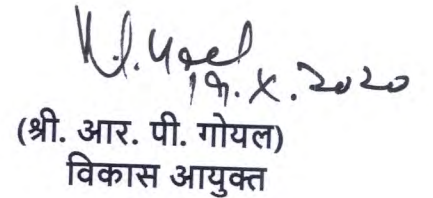 19.X.2020
(श्री. आर. पी. गोयल)
विकास आयुक्त